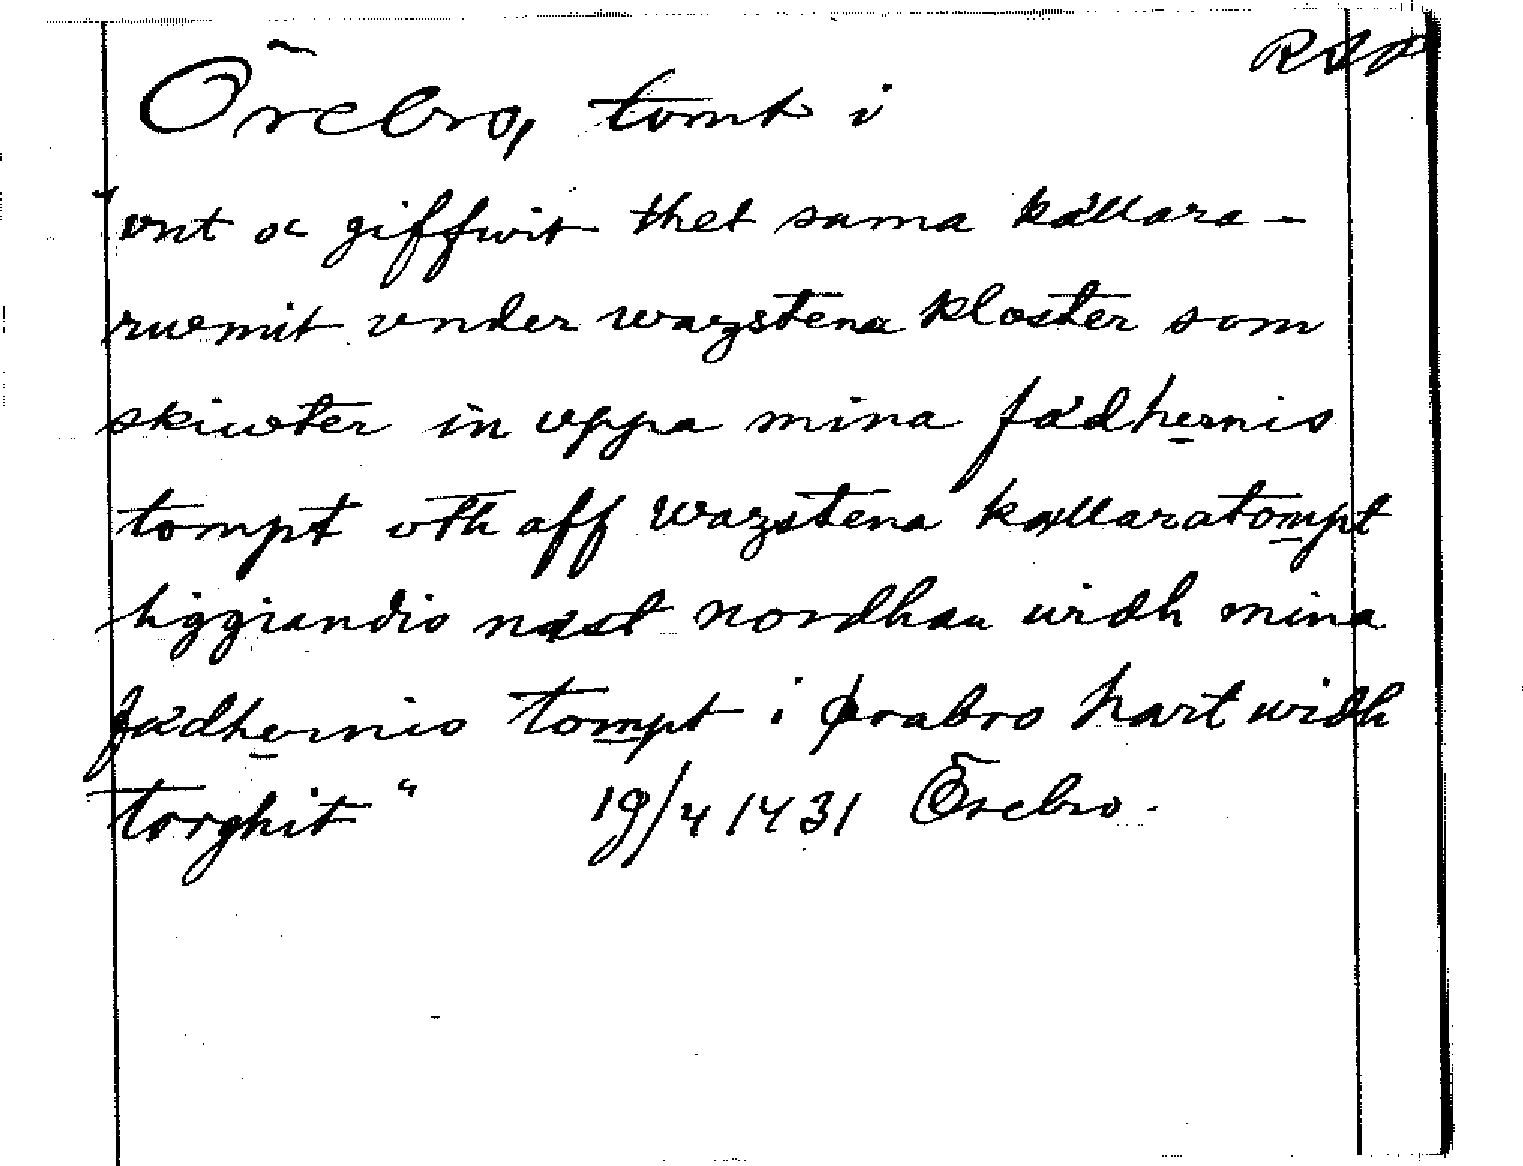 RAP
Örebro, tomt i
"vnt oc giffwit thet sama källara-
rwmit vnder wazstena kloster som
skiwter in vppa mina fädhernis
tompt vth aff wazstena kællaratompt
liggiandis næst nordhan widh mina
fädhernis tompt i ørabro hart widh
torghit" 19/4 1431 Örebro.